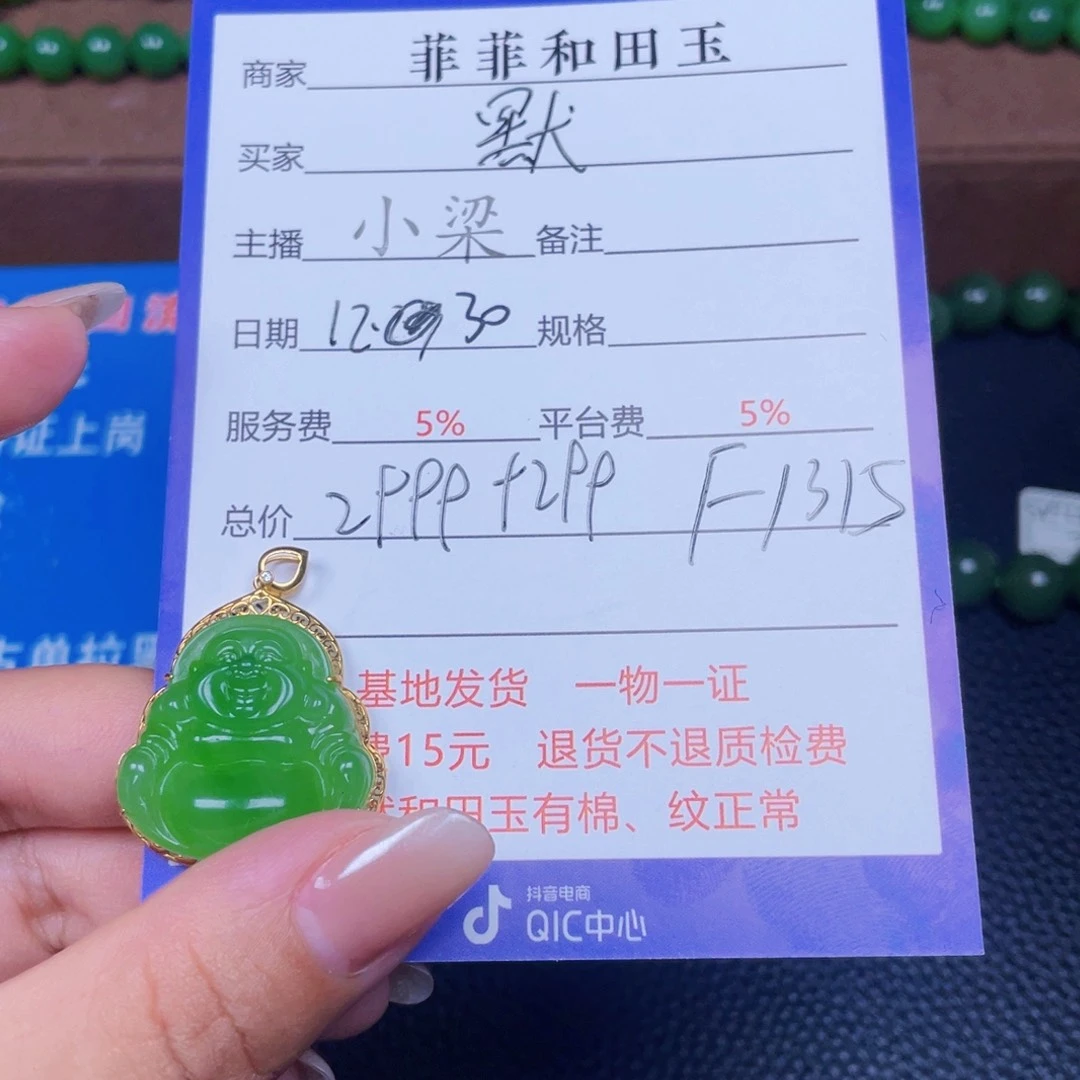 商家 菲菲和田玉
买家 默
主播 小梁 备注
日期 12. 30 规格
服务费 5% 平台费 5%
总价 2999+299 F-1315
基地发货 一物一证
费15元 退货不退质检费
然和田玉有棉、纹正常
抖音电商
QIC中心
证上岗